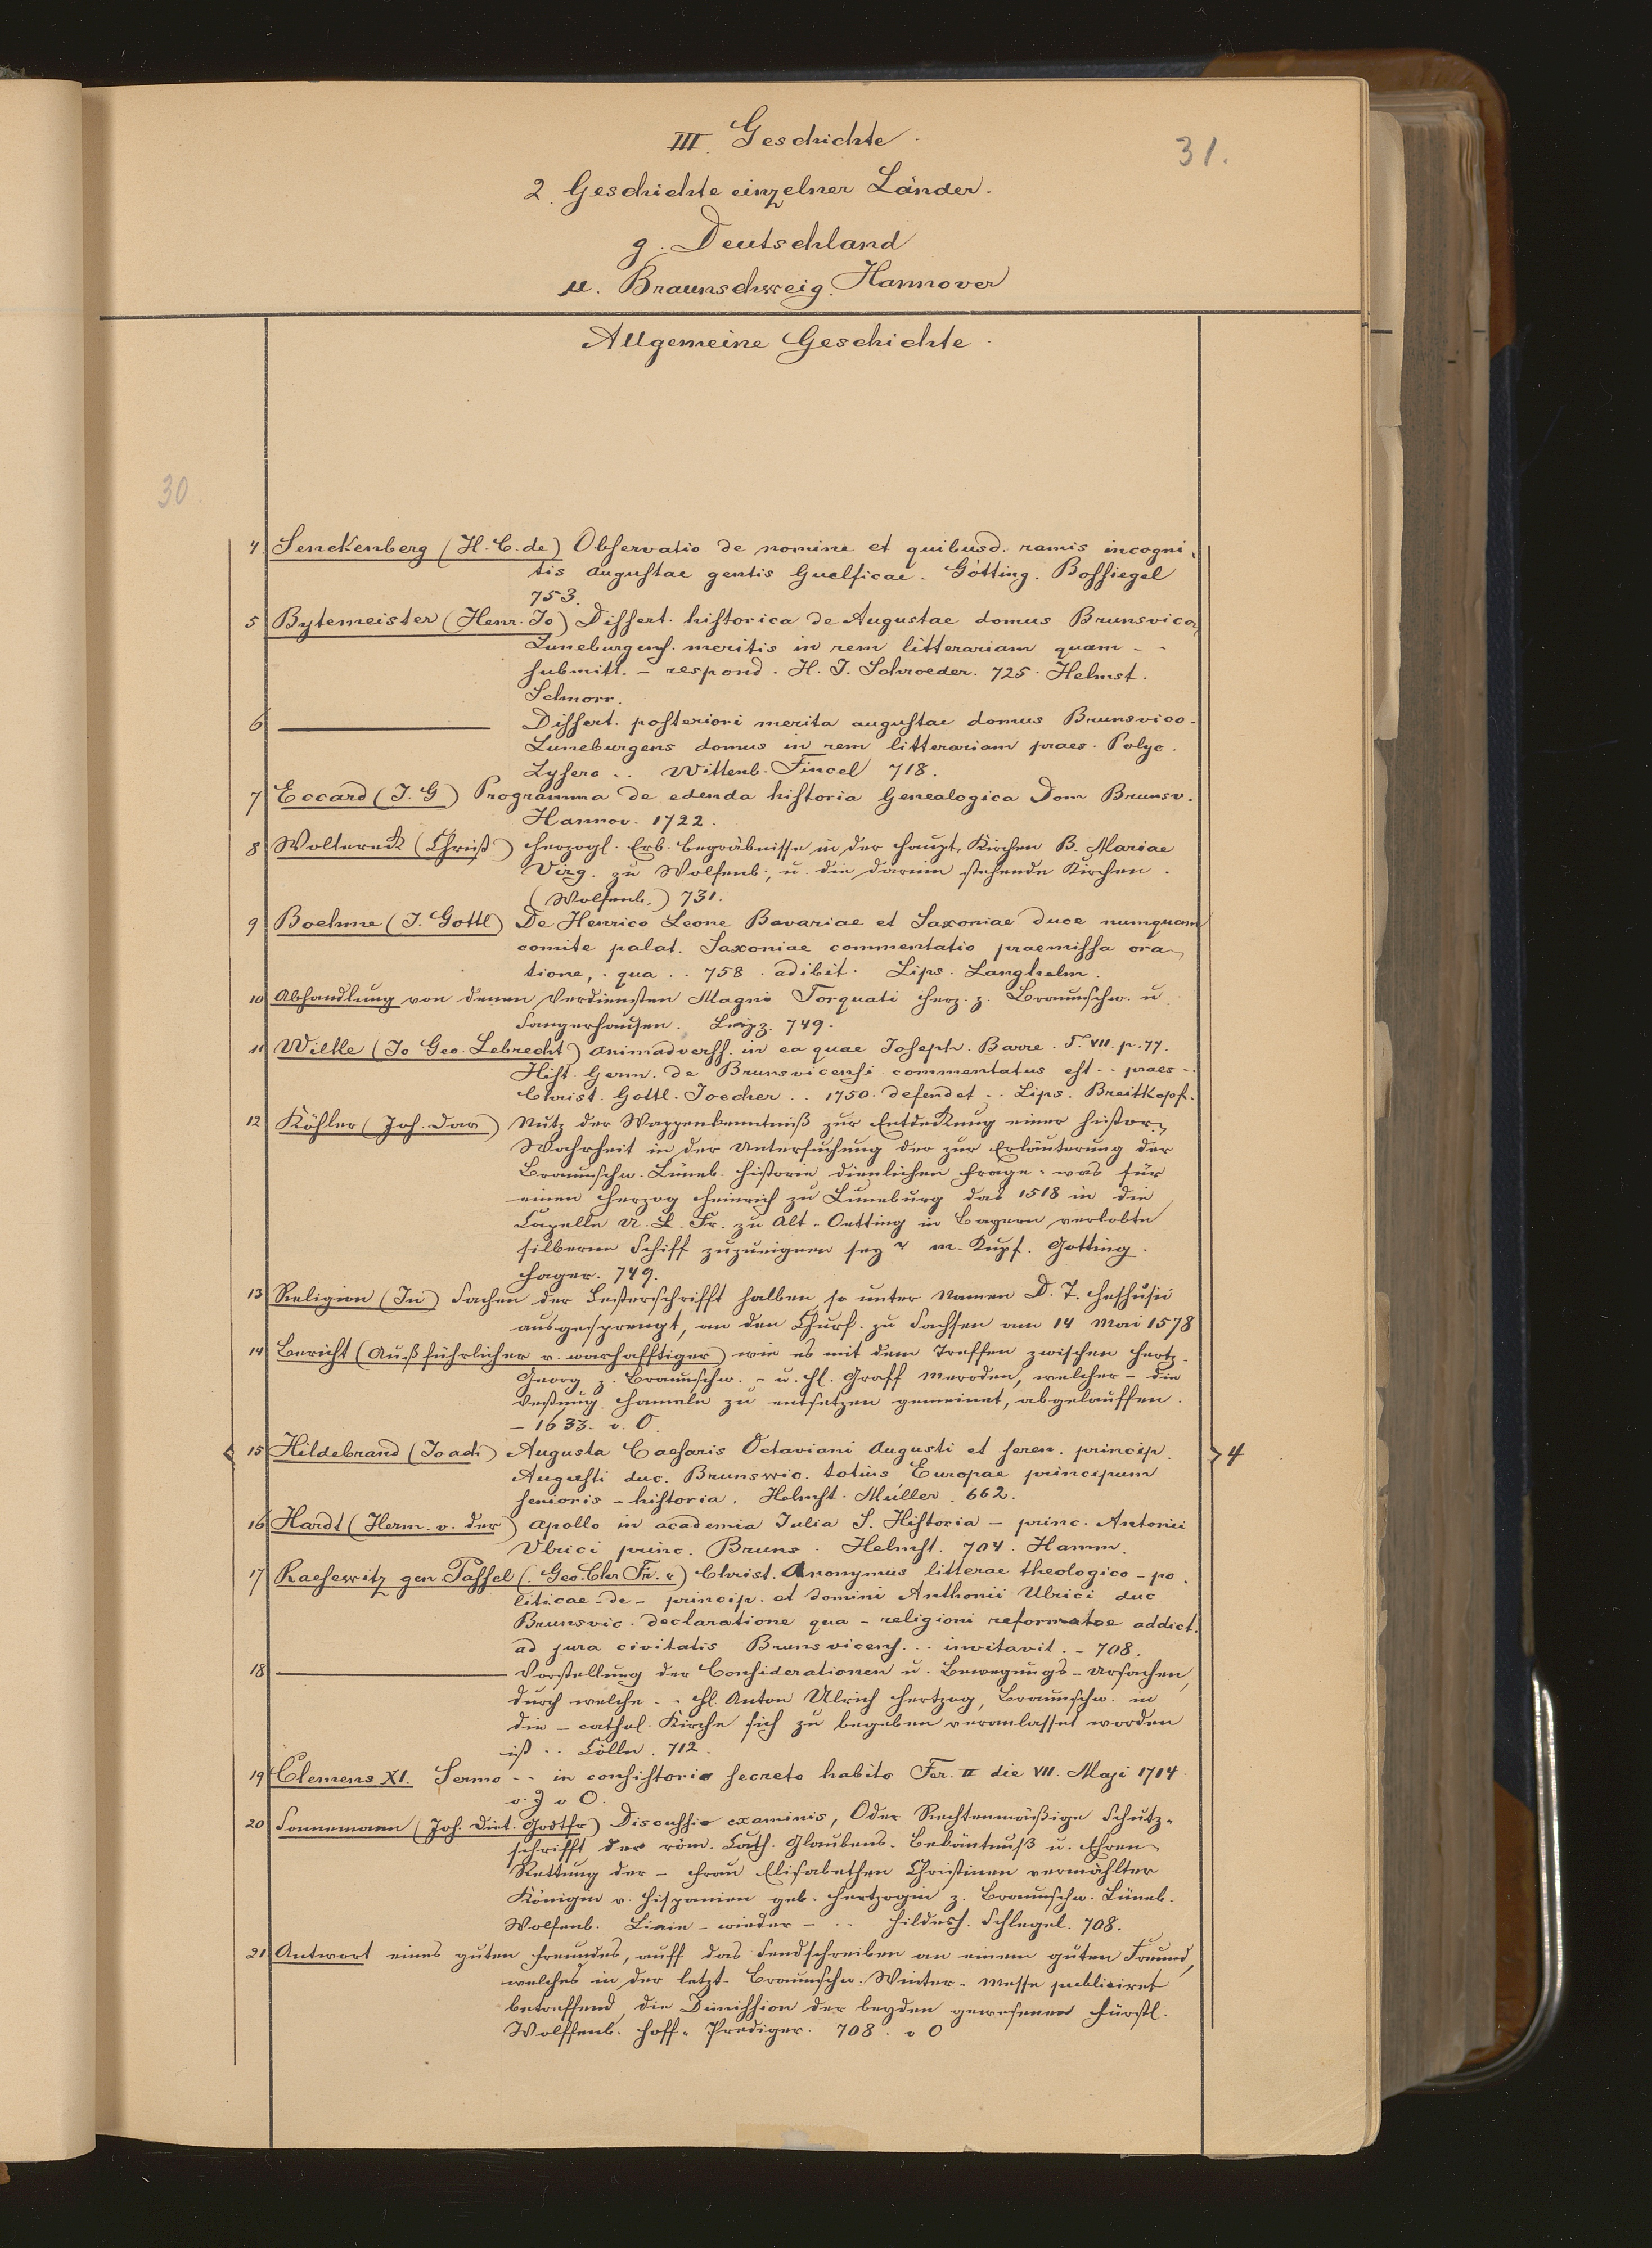 III. Geschichte.
31.
2. Geschichte einzelner Länder.
g. Deutschland
μ. Braunschweig. Hannover
Allgemeine Geschichte.
30.
4. Senckenberg (H. C. de) Observatio de nomine et quibusd. ramis incogni-
tis augustae gentis Guelficae. Götting. Bossiegel
753.
5 Bytemeister (Henr. Jo) Dissert. historica de Augustae domus Brunsvico,
Luneburgens. meritis in rem litterariam quam - -
submitt. - respond. H. J. Schroeder. 725. Helmst.
Schnorr.
6 Dissert. posteriori merita augustae domus Brunsvico-
Luneburgens domus in rem litterariam praes. Polyc.
Lysero .. Wittenb. Fincel 718.
7 Eccard (J. G) Programma de edenda historia Genealogica Dom Brunsv.
Hannov. 1722.
8 Woltereck (Christ) Herzogl. Erb. begräbnisse in der Haupt Kirchen B. Mariae
Virg. zu Wolfenb., u. die darinn stehende Kirchen.
(Wolfenb.) 731.
9 Boehme (J. Gottl) De Henrico Leone Bavariae et Saxoniae duce numquam
comite palat. Saxoniae commentatio praemissa ora-
tione, . qua .. 758. adibit. Lips. Langhelm.
10 Abhandlung von denen Verdiensten Magni Torquati Herz. z. Braunschw. u.
Sangerhausen. Leipz. 749.
11 Wilke (Jo Geo. Lebrecht) animadverss. in ea quae Joseph. Barre. T. VII. p. 77.
Hist. Germ. de Brunsvicensi commentatus est .. praes ..
Christ. Gottl. Joecher .. 1750. defendet .. Lips. Breitkopf.
12 Köhler (Joh. Dav) Nutz der Wappenkenntniß zur Entdeckung einer histor.
Wahrheit in der Untersuchung der zur Erläuterung der
Braunschw. Lüneb. Historie dienlichen Frage: was für
einen Herzog Heinrich zu Luneburg das 1518 in die
Capelle U. L. Fr. zu Alt-Oetting in Bayern verlobte
silberne Schiff zuzueignen sey? m. Kupf. Gotting.
Hager. 749.
13 Religion (In) Sachen der Lesterschrifft halben, so unter Namen D. T. Heshusii
ausgesprengt, an den Churf. zu Sachsen am 14 Mai 1578
14 Bericht (Außführlicher v. warhafftiger) wie es mit dem Treffen zwischen Hertz.
Georg z. Braunschw. - u. H. Graff Meroden, welcher - die
Vestung Hameln zu entsetzen gemeinet, abgelauffen.
- 1633. o. O.
15 Hildebrand (Joach) Augusta Caesaris Octaviani Augusti et seren. princip.
4
Augusti duc. Brunswic. totius Europae principum
senioris - historia. Helmst. Müller. 662.
16 Hardt (Herm. v. der) Apollo in academia Julia S. Historia - princ. Antonii
Ulrici princ. Bruns. Helmst. 704. Hamm.
17 Raesewitz gen. Tassel (Geo. Chr Fr. v) Christ. Anonymus litterae theologico - po.
liticae - de - princip. et domini Anthonii Ulrici duc
Brunsvic. declaratione qua - religioni reformatae addict.
ad jura civitatis Brunsvicens. .. invitavit. - 708.
18 Vorstellung der Considerationen u. Bewegungs - Ursachen,
durch welche .. H. Anton Ulrich Hertzog, Braunschw. in
die - cathol. Kirche sich zu begeben veranlasset worden
ist .. Cölln. 712.
19 Clemens XI. Sermo .. in consistorio secreto habito Fer. II die VII. Maji 1714.
o. J o O.
20 Sonnemann (Joh. Diet. Godtfr) Discussio examinis, Oder Rechtenmäßige Schutz-
schrifft der röm. Cath. Glaubens-Bekäntnuß u. Ehren
Rettung der - Frau Elisabethen Christinen vermählter
Königin v. Hispanien geb. Hertzogin z. Braunschw. Lüneb.
Wolfenb. Linie - wieder - .. Hildesh. Schlegel. 708.
21 Antwort eines guten Freundes, auff das Sendschreiben an einem guten Freund,
welches in der letzt. Braunschw. Winter-Messe publiciret
betreffend die Dimission der beyden gewesenen Fürstl.
Wolffenb. Hoff-Prediger. 708. o O